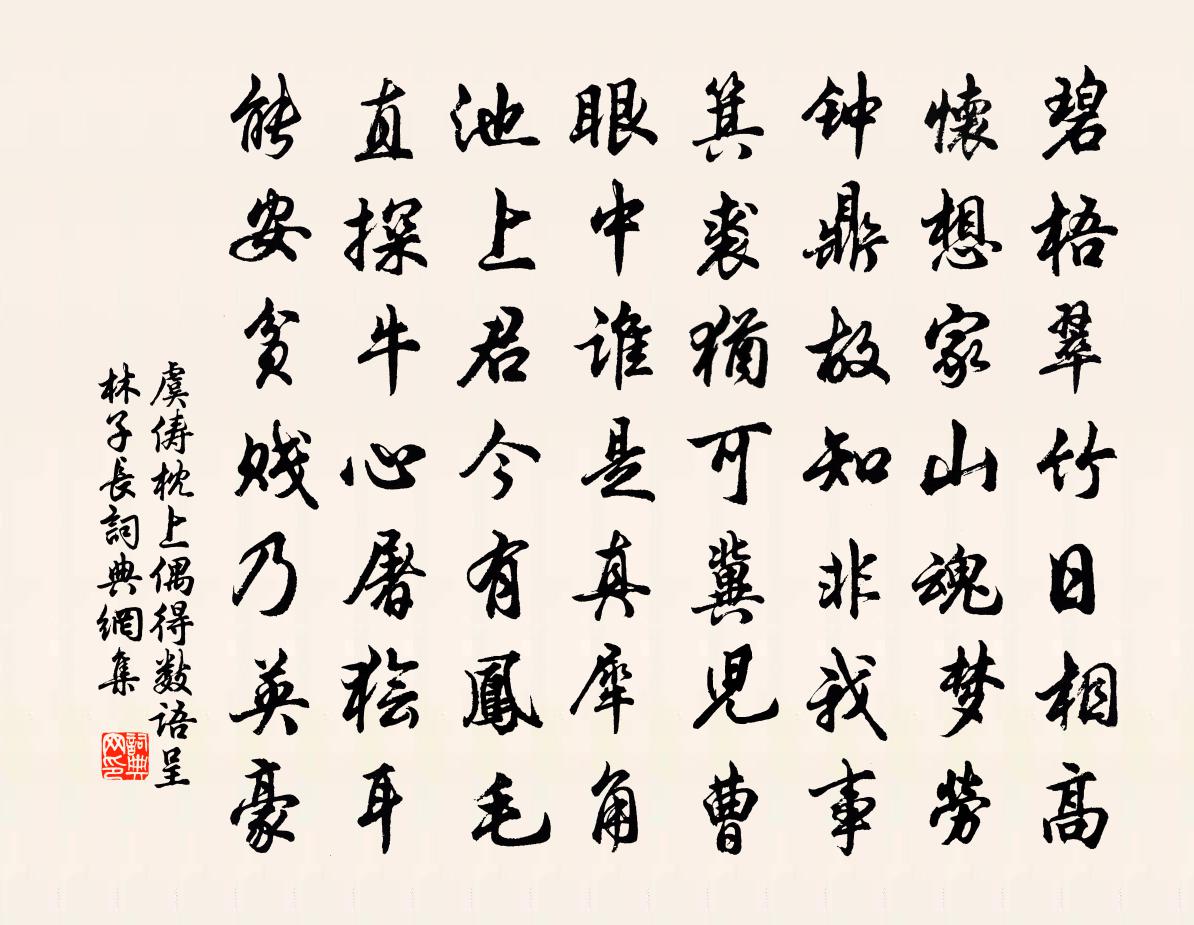 碧梧翠竹日相高
懷想家山魂梦勞
钟鼎故知非我事
箕裘猶可冀児曹
眼中谁是真犀角
池上君今有鳳毛
直探牛心屠狯耳
能安贫贱乃英豪
虞俦枕上偶得数语呈
林子長詞典網集
詞典网印